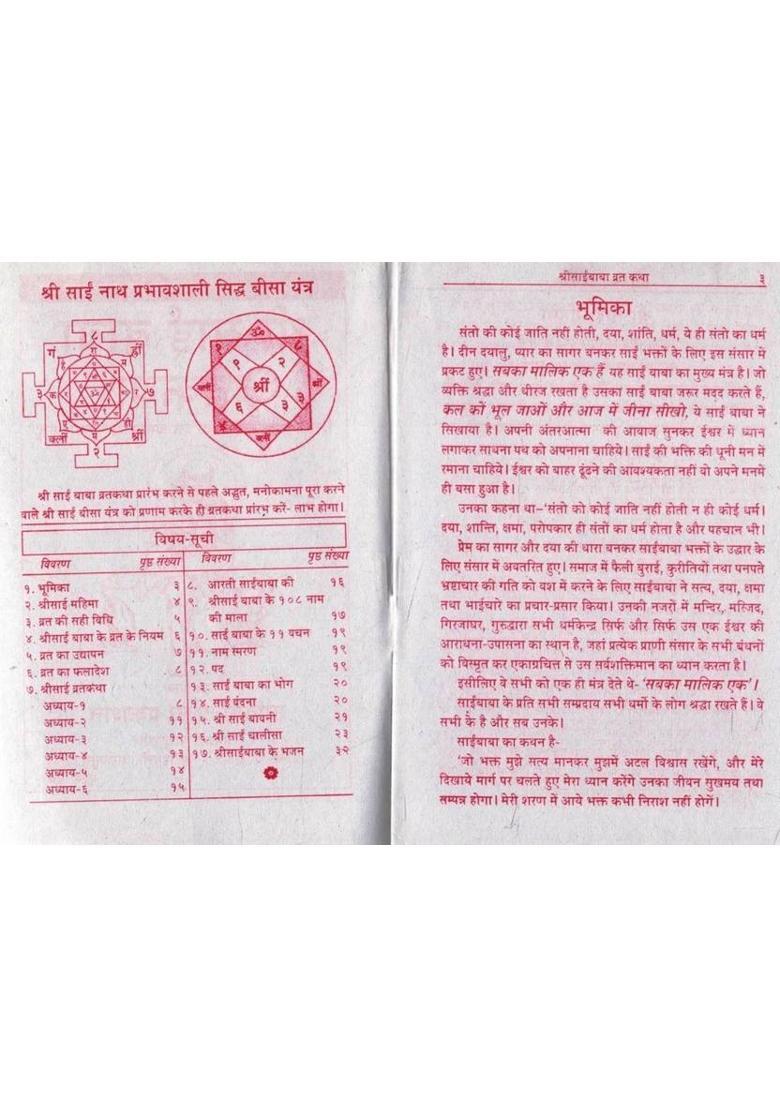 श्री साईं नाथ प्रभावशाली सिद्ध बीसा यंत्र
८
गं
ह्रीं
३
७
क्लीं
श्रीं
२
ॐ
१
८
१
२
क्लीं
श्रीं
श्रीं
६
३
३
४
क्लीं
श्री साईं बाबा व्रतकथा प्रारंभ करने से पहले अद्भुत, मनोकामना पूरा करने
वाले श्री साईं बीसा यंत्र को प्रणाम करके ही व्रतकथा प्रारंभ करें- लाभ होगा।
विषय-सूची
विवरण पृष्ठ संख्या विवरण पृष्ठ संख्या
१. भूमिका ३
२. श्रीसाई महिमा ४
३. व्रत की सही विधि ५
४. श्रीसाईं बाबा के व्रत के नियम ६
५. व्रत का उद्यापन ७
६. व्रत का फलादेश ८
७. श्रीसाई व्रतकथा
अध्याय-१ ८
अध्याय-२ ११
अध्याय-३ १२
अध्याय-४ १३
अध्याय-५ १४
अध्याय-६ १५
८. आरती साईंबाबा की १६
९. श्रीसाईं बाबा के १०८ नाम
की माला १७
१०. साईं बाबा के ११ वचन १९
११. नाम स्मरण १९
१२. पद १९
१३. साईं बाबा का भोग २०
१४. साईं वंदना २०
१५. श्री साईं बावनी २१
१६. श्री साईं चालीसा २३
१७. श्रीसाईबाबा के भजन ३२
श्रीसाईबाबा व्रत कथा ३
भूमिका
संतो की कोई जाति नहीं होती, दया, शांति, धर्म, ये ही संतो का धर्म
है। दीन दयालु, प्यार का सागर बनकर साईं भक्तों के लिए इस संसार में
प्रकट हुए। सबका मालिक एक हैं यह साईं बाबा का मुख्य मंत्र है। जो
व्यक्ति श्रद्धा और धीरज रखता है उसका साईं बाबा जरूर मदद करते हैं,
कल को भूल जाओं और आज में जीना सीखो, ये साईं बाबा ने
सिखाया है। अपनी अंतरआत्मा की आवाज सुनकर ईश्वर में ध्यान
लगाकर साधना पथ को अपनाना चाहिये। साईं की भक्ति की धूनी मन में
रमाना चाहिये। ईश्वर को बाहर ढूंढने की आवश्यकता नहीं वो अपने मनमें
ही बसा हुआ है।
उनका कहना था-'संतो को कोई जाति नहीं होती न ही कोई धर्म।
दया, शान्ति, क्षमा, परोपकार ही संतों का धर्म होता है और पहचान भी।
प्रेम का सागर और दया की धारा बनकर साईबाबा भक्तों के उद्धार के
लिए संसार में अवतरित हुए। समाज में फैली बुराई, कुरीतियों तथा पनपते
भ्रष्टाचार की गति को वश में करने के लिए साईबाबा ने सत्य, दया, क्षमा
तथा भाईचारे का प्रचार-प्रसार किया। उनकी नजरों में मन्दिर, मस्जिद,
गिरजाघर, गुरुद्वारा सभी धर्मकेन्द्र सिर्फ और सिर्फ उस एक ईश्वर की
आराधना-उपासना का स्थान है, जहां प्रत्येक प्राणी संसार के सभी बंधनों
को विस्मृत कर एकाग्रचित्त से उस सर्वशक्तिमान का ध्यान करता है।
इसीलिए वे सभी को एक ही मंत्र देते थे- 'सबका मालिक एक'।
साईबाबा के प्रति सभी सम्प्रदाय सभी धर्मो के लोग श्रद्धा रखते हैं। वे
सभी के है और सब उनके।
साईबाबा का कथन है-
'जो भक्त मुझे सत्य मानकर मुझमें अटल विश्वास रखेंगे, और मेरे
दिखाये मार्ग पर चलते हुए मेरा ध्यान करेंगे उनका जीवन सुखमय तथा
सम्पन्न होगा। मेरी शरण में आये भक्त कभी निराश नहीं होगें।